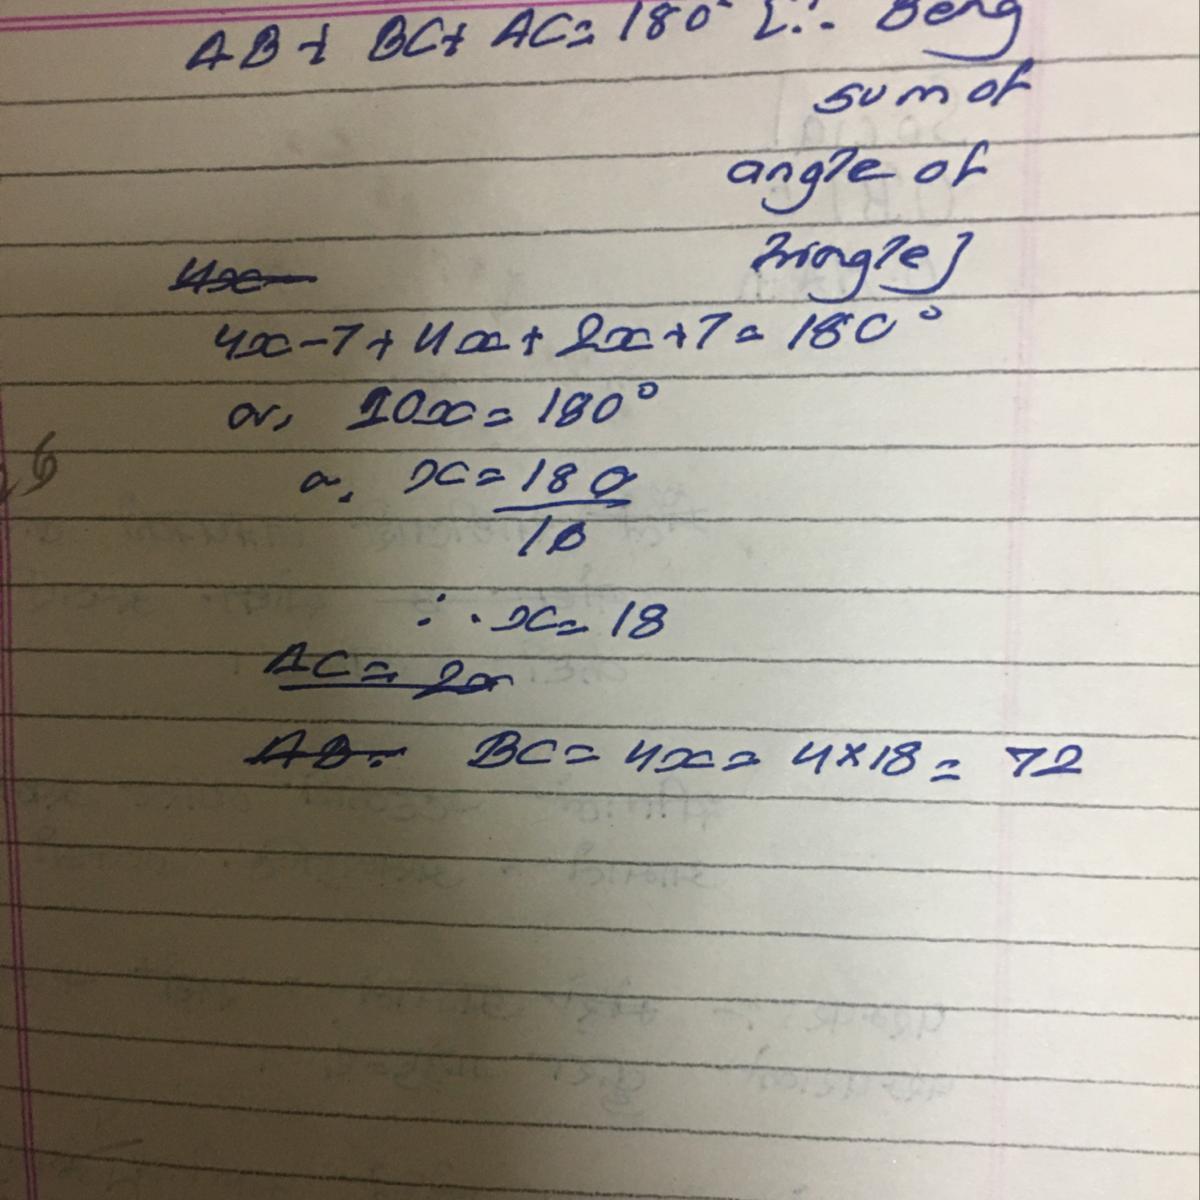 AB + BC + AC = 180° [∵ Beng
sum of
angle of
triangle]
4x
4x - 7 + 4x + 2x + 7 = 180°
or, 10x = 180°
or, x = 180
10
∴ x = 18
AC = 2x
AB. BC = 4x = 4 × 18 = 72